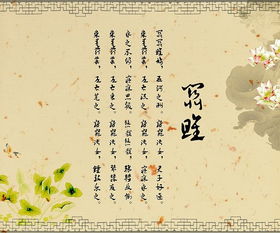 關雎
關關雎鳩，在河之洲。窈窕淑女，君子好逑。
參差荇菜，左右流之。窈窕淑女，寤寐求之。
求之不得，寤寐思服。悠哉悠哉，輾轉反側。
參差荇菜，左右采之。窈窕淑女，琴瑟友之。
參差荇菜，左右芼之。窈窕淑女，鐘鼓樂之。